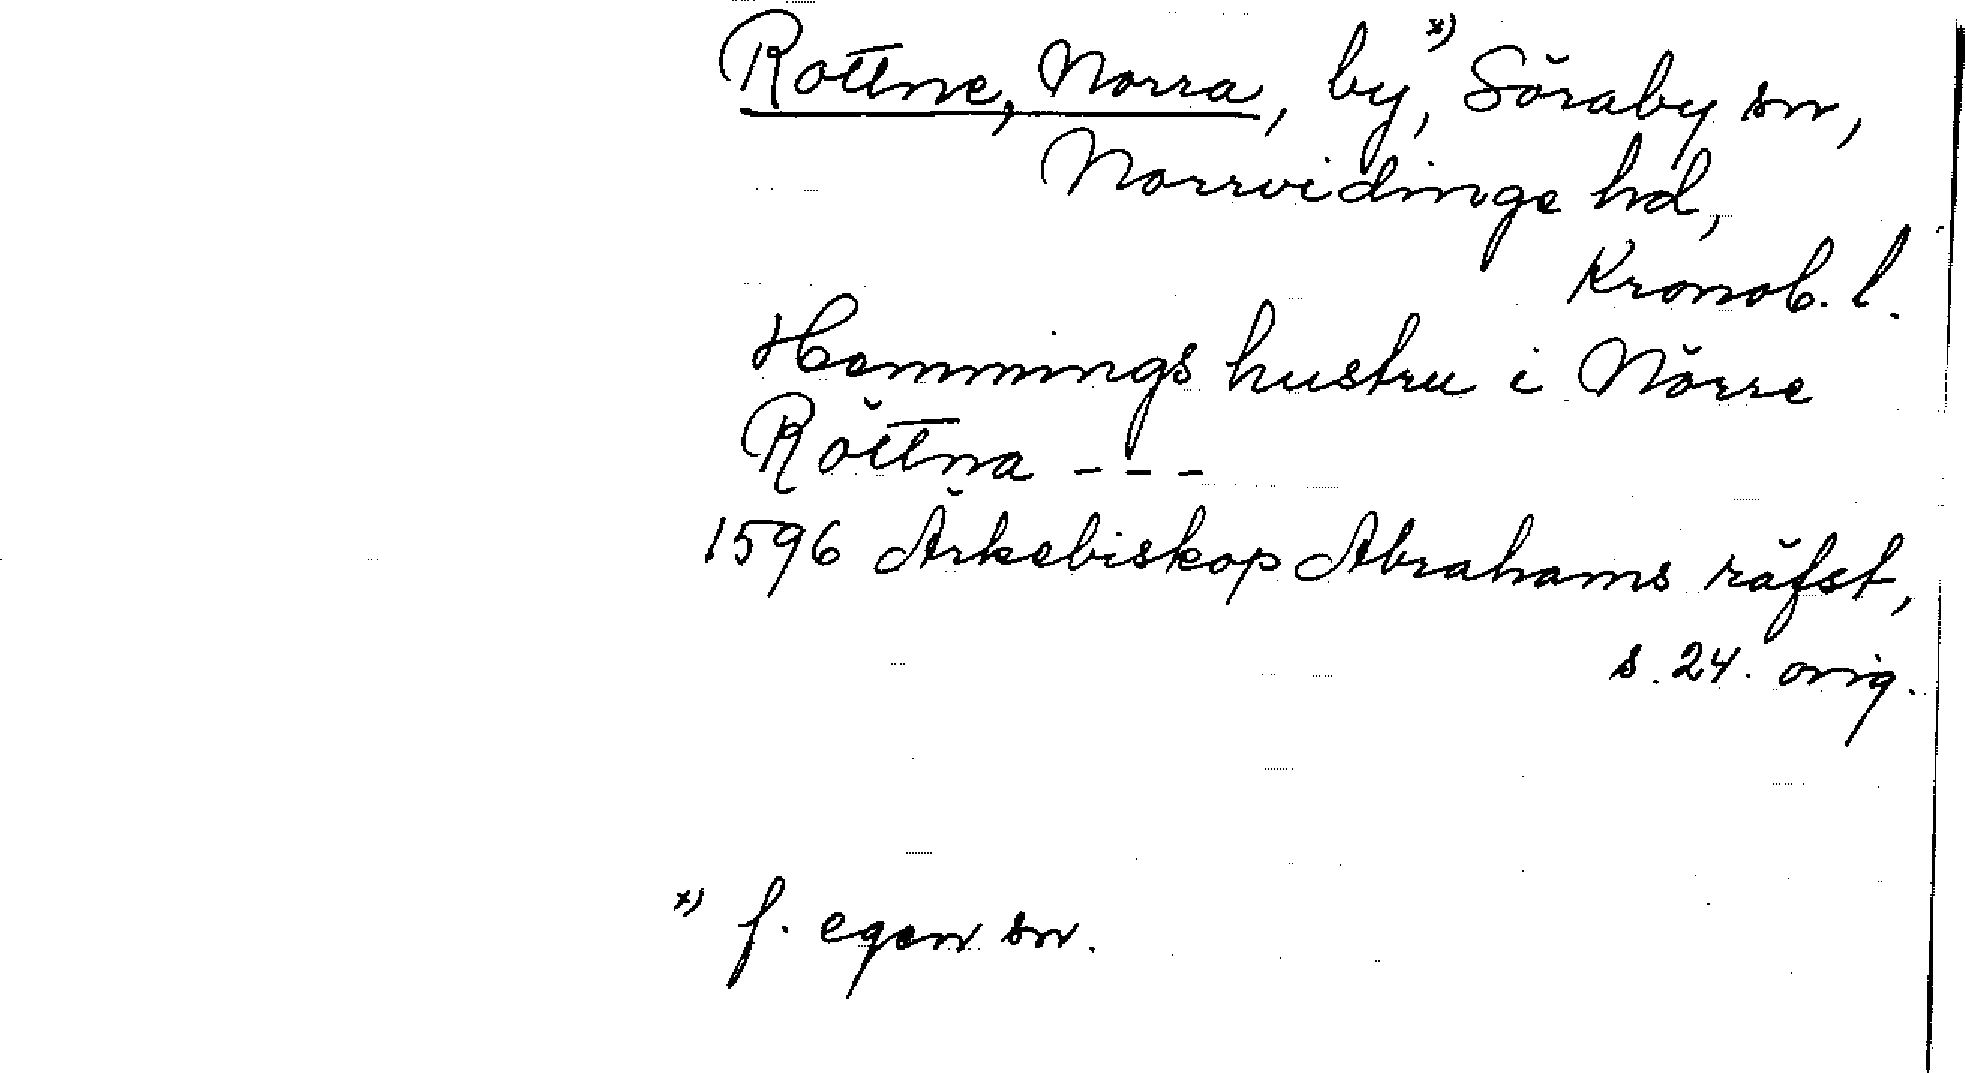 Rottne, Norra, by,ˣ⁾ Söraby sn,
Norrvidinge hd,
Kronob. l.
Hemmings hustru i Nörre
Röttna - - -
1596 Ärkebiskop Abrahams räfst,
s. 24. orig.
ˣ⁾ f. egen sn.